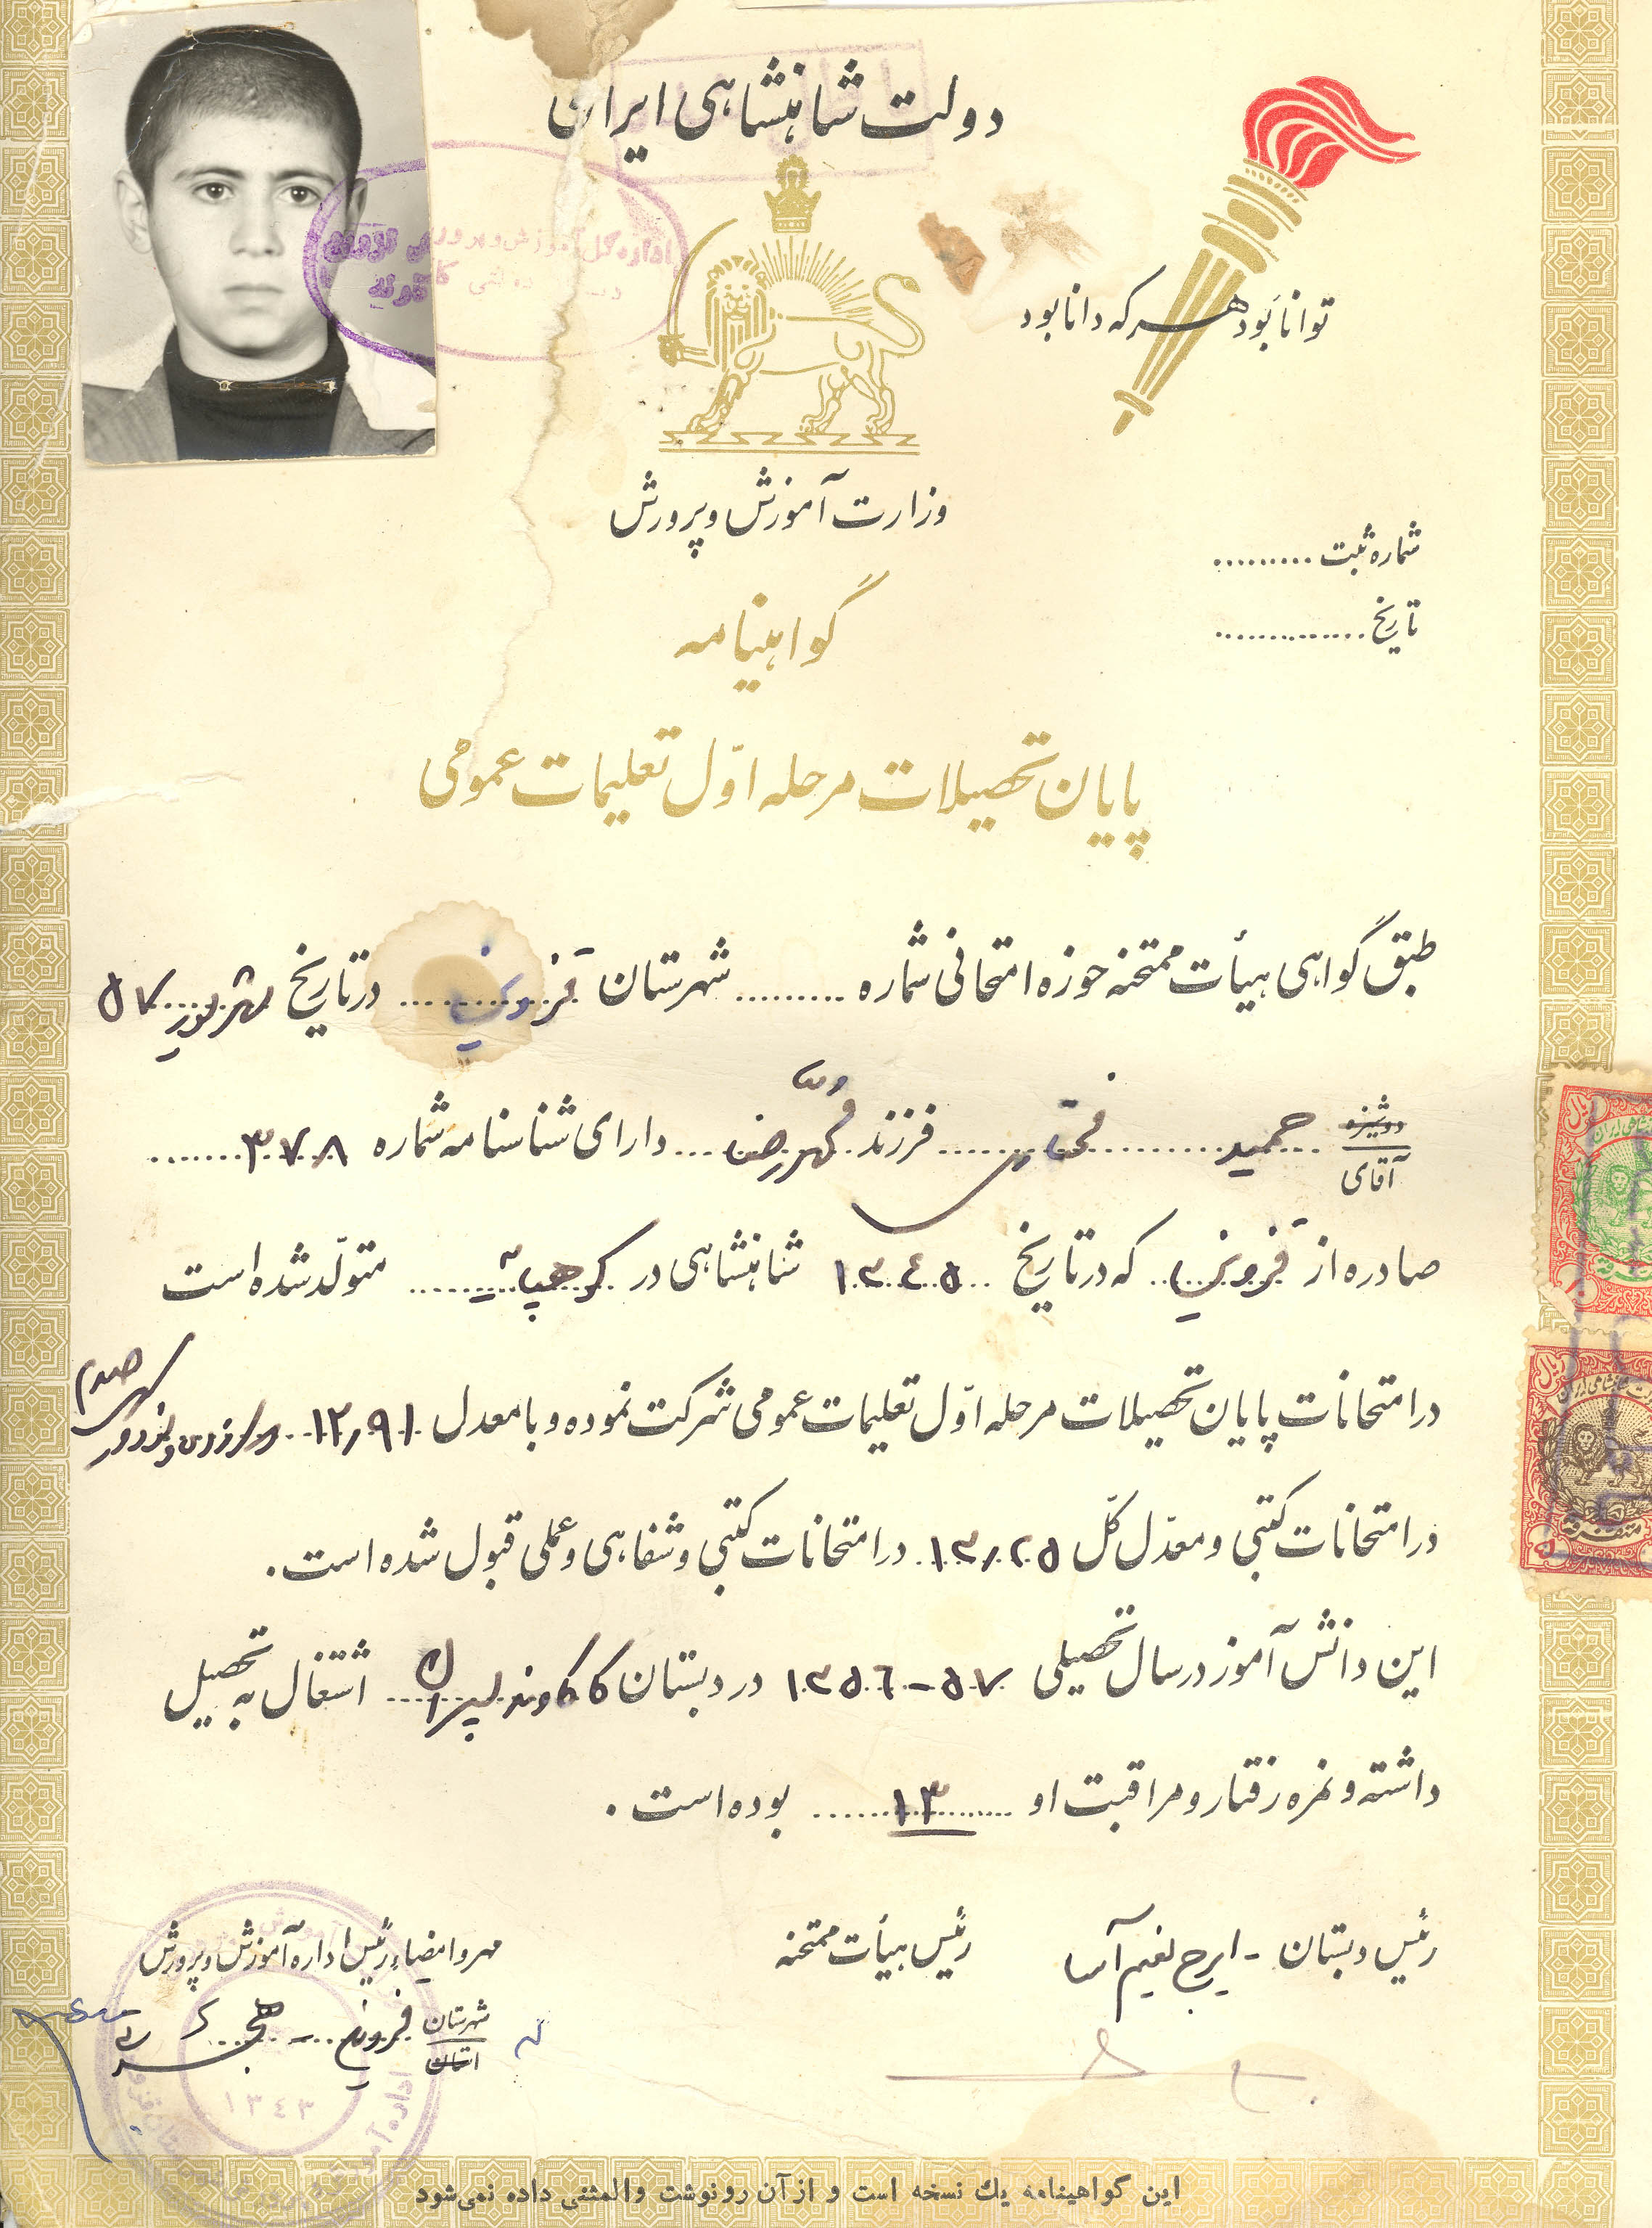 دولت شاهنشاهی ایران
توانا بود هر که دانا بود
وزارت آموزش و پرورش
شماره ثبت ..........
تاریخ ..............
گواهینامه
پایان تحصیلات مرحله اوّل تعلیمات عمومی
طبق گواهی هیأت ممتحنه حوزه امتحانی شماره .......... شهرستان قزوین در تاریخ شهریور ۵۷
دوشیزه
آقای
حمید فتحی فرزند دارای شناسنامه شماره ۳۷۸
صادره از قزوین که در تاریخ ۱۳۴۵ شاهنشاهی در متولّد شده است
در امتحانات پایان تحصیلات مرحله اوّل تعلیمات عمومی شرکت نموده و با معدل ۱۲٫۹۱ دوازده و نود و یک صدم
در امتحانات کتبی و معدّل کلّ ۱۳٫۲۵ در امتحانات کتبی و شفاهی و عملی قبول شده است.
این دانش آموز در سال تحصیلی ۵۷-۱۳۵۶ در دبستان کاکوند اشتغال به تحصیل
داشته و نمره رفتار و مراقبت او ۱۳ بوده است.
رئیس دبستان - ایرج نعیم آسا
رئیس هیأت ممتحنه
مهر و امضاء رئیس اداره آموزش و پرورش
شهرستان
استان
قزوین
۱۳۴۳
این گواهینامه یك نسخه است و از آن رونوشت والمثنی داده نمی‌شود